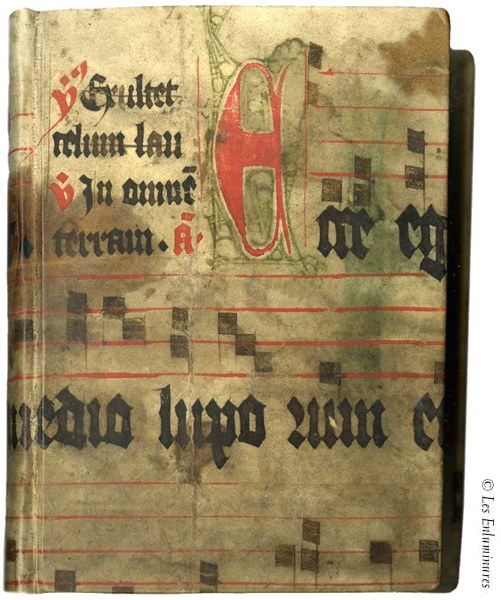 ym̄ Exultet
celum lau
℣ In omnē
terram. a.
Ecce eg
medio lupo rum e
© Les Enluminures